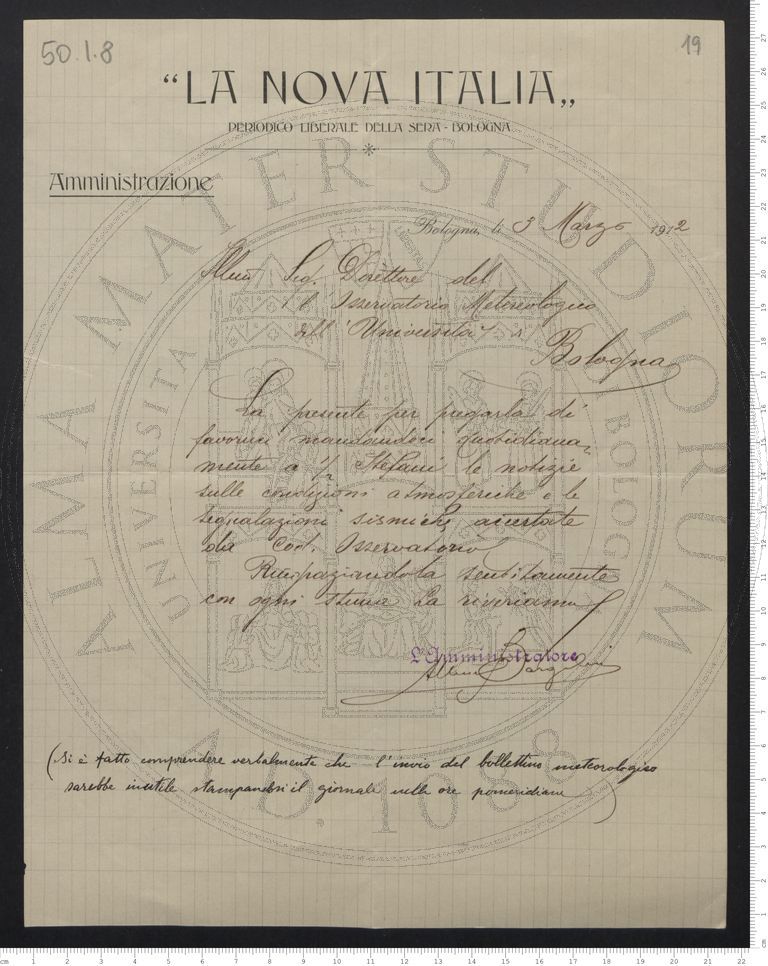 50.1.8
19
"LA NOVA ITALIA„
PERIODICO LIBERALE DELLA SERA - BOLOGNA
Amministrazione
Bologna, li 3 Marzo 1912
Illmo Sig. Direttore del
Osservatorio Metereologico
dell' Università di
Bologna
La presente per pregarla di
favorirci mandandoci quotidiana-
mente a 1/2 Stefani le notizie
sulle condizioni atmosferiche e le
segnalazioni sismiche accertate
da cod. Osservatorio
Ringraziandola sentitamente
con ogni stima La riveriamo
L'Amministratore
(Si è fatto comprendere verbalmente che l'invio del bollettino meteorologico
sarebbe inutile stampandosi il giornale nelle ore pomeridiane)
ALMA MATER STUDIORUM
UNIVERSITA
BOLOG
A.D. 1088